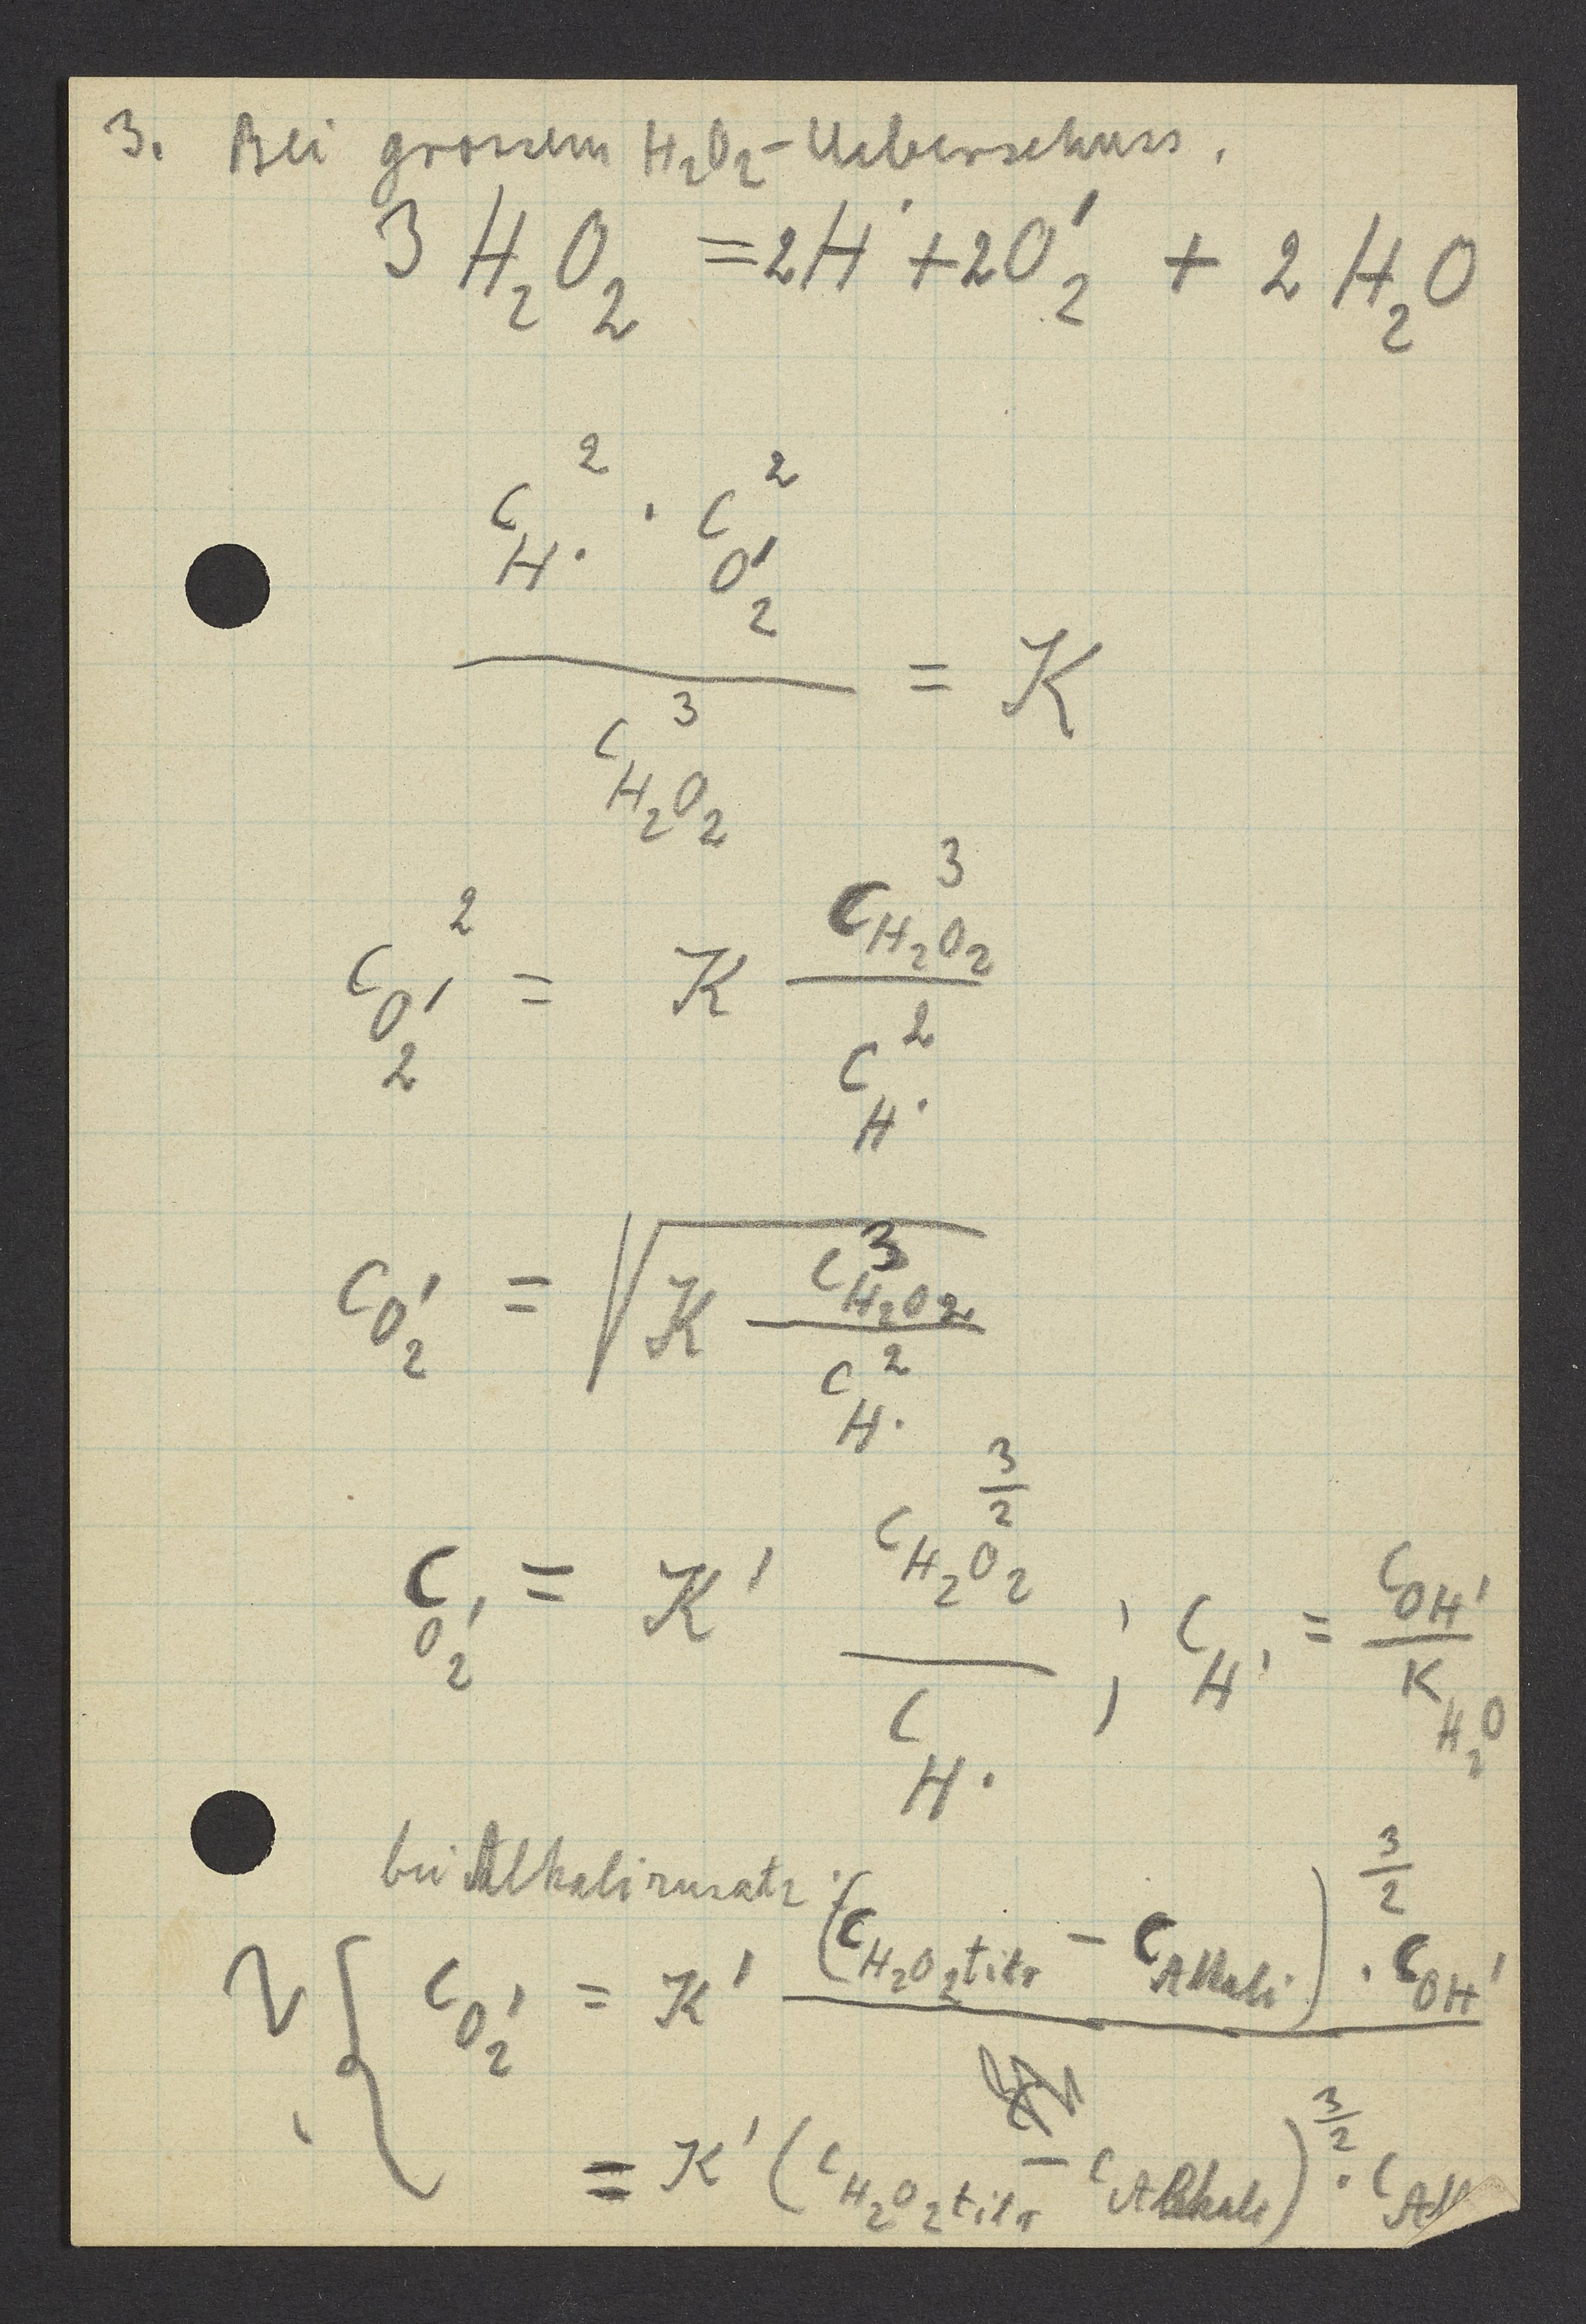 3. Bei grossem H₂O₂-Ueberschuss.
3 H₂O₂ = 2H˙ + 2O₂′ + 2 H₂O
c_H˙² · c_O₂′² / c_H₂O₂³ = K
c_O₂′² = K c_H₂O₂³ / c_H˙²
c_O₂′ = √(K c_H₂O₂³ / c_H˙²)
c_O₂′ = K′ c_H₂O₂^(3/2) / c_H˙ ; c_H˙ = c_OH′ / K_H₂O
bei Alkalizusatz:
c_O₂′ = K′ (c_H₂O₂titr − c_Alkali)^(3/2) · c_OH′
= K′ (c_H₂O₂titr − c_Alkali)^(3/2) · c_Alk